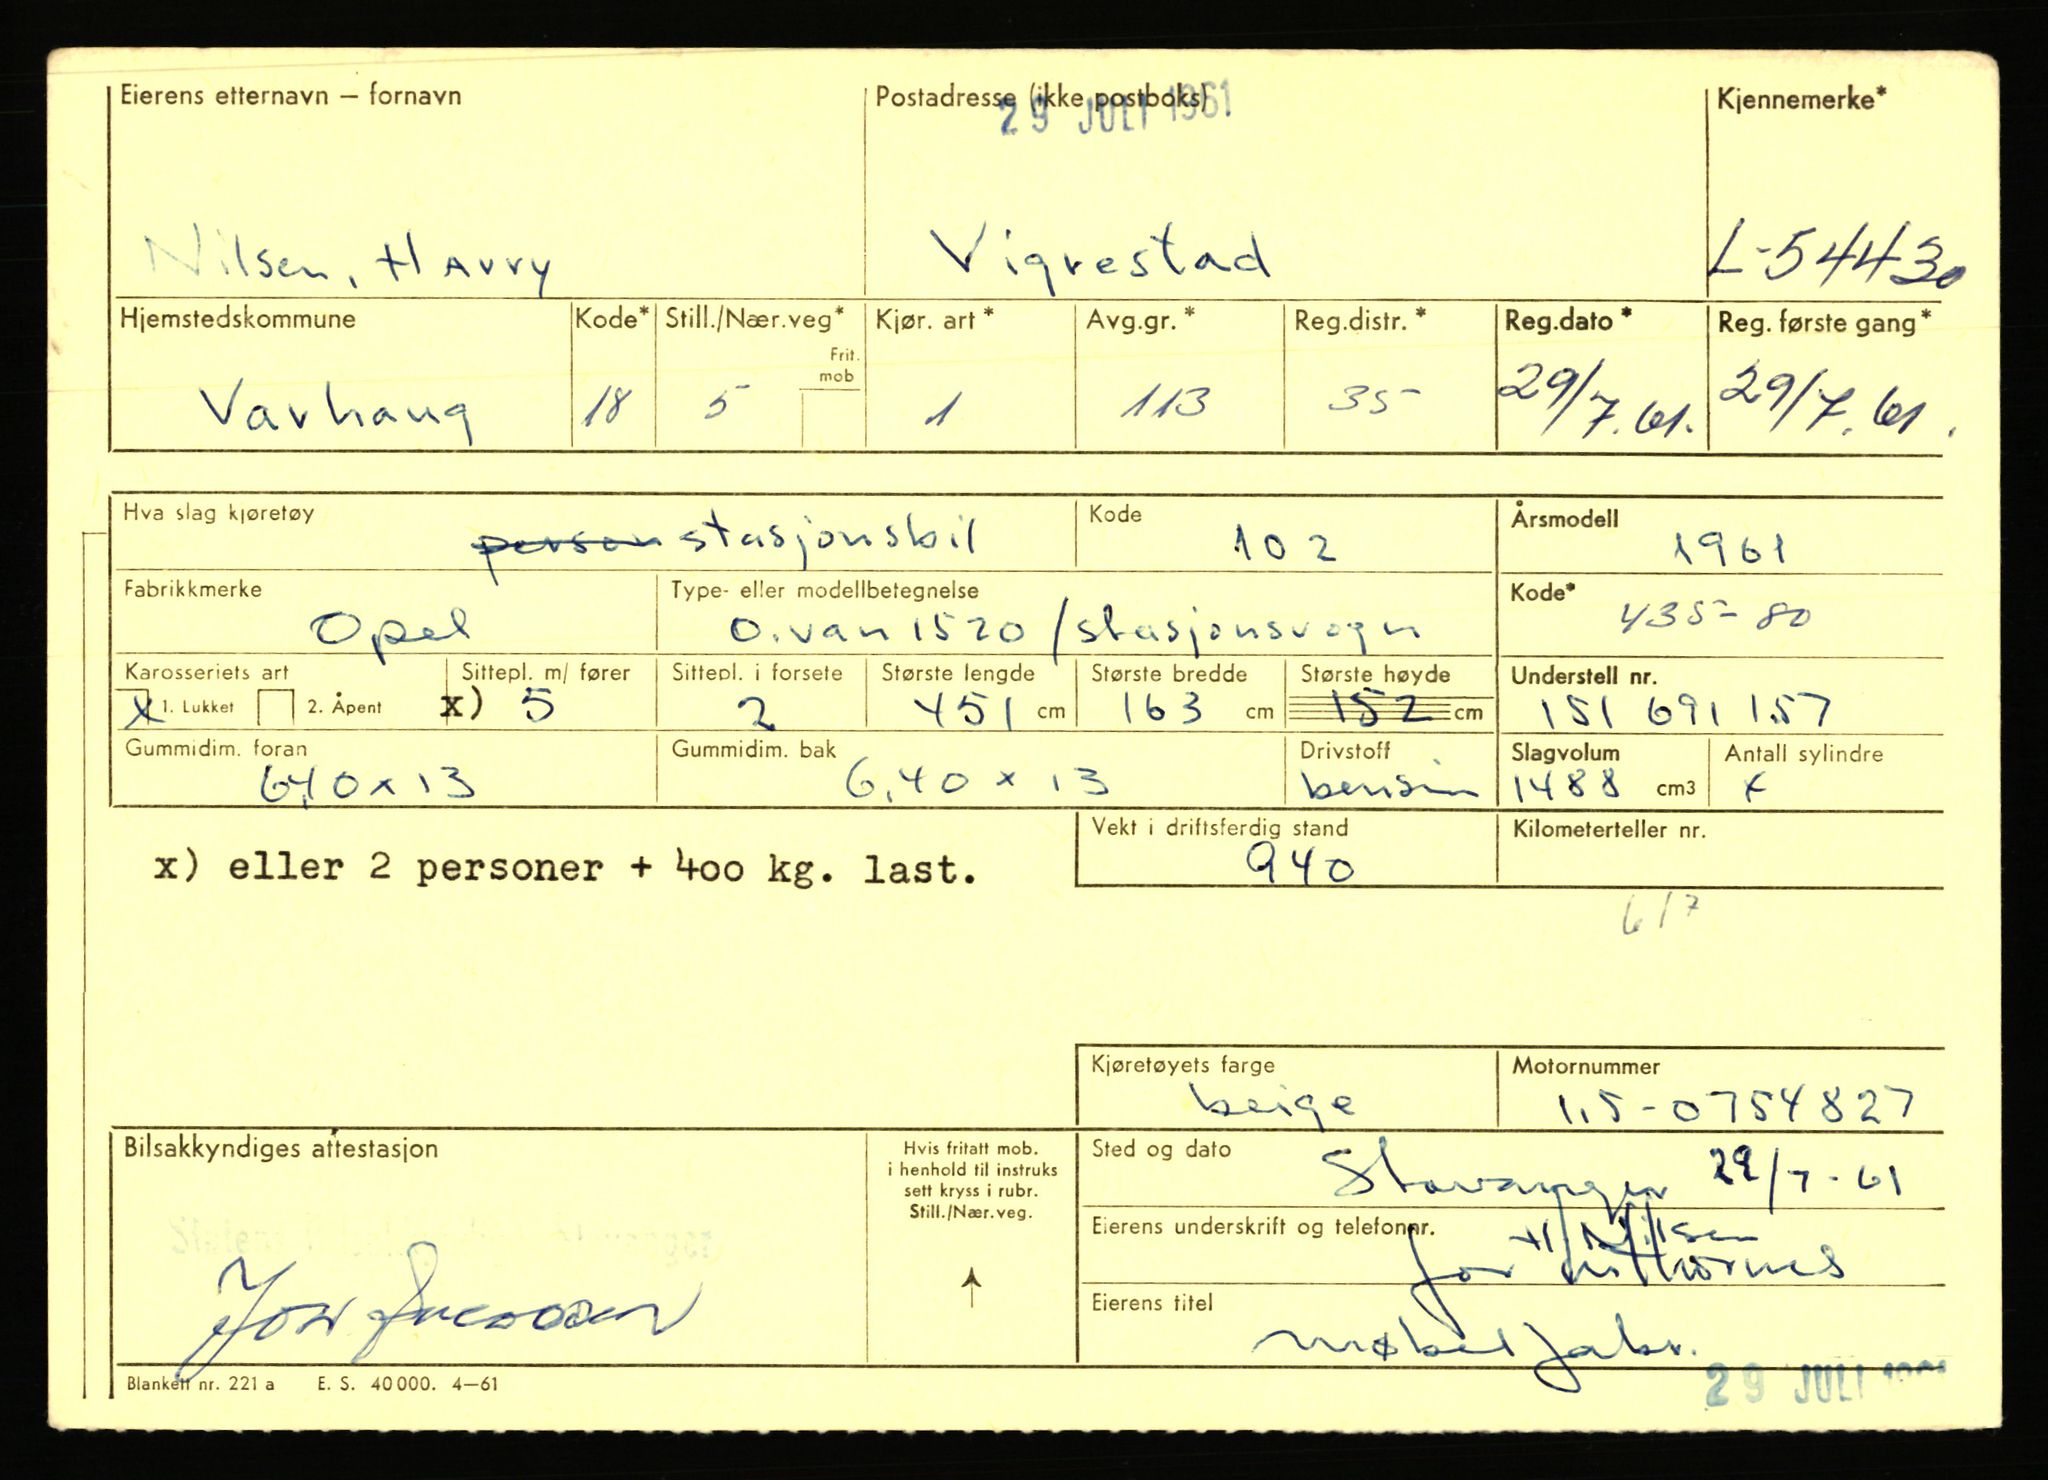 Eierens etternavn – fornavn Postadresse (ikke postboks) Kjennemerke*
29 JULI 1961
Nilsen, Harry Vigrestad L-54430
Hjemstedskommune Kode* Still./Nær.veg* Kjør. art* Avg.gr.* Reg.distr.* Reg.dato* Reg. første gang*
Frit. mob
Varhaug 18 5 1 113 35 29/7.61. 29/7.61.
Hva slag kjøretøy Kode Årsmodell
person stasjonsbil 102 1961
Fabrikkmerke Type- eller modellbetegnelse Kode*
Opel O.van 1520/stasjonsvogn 435-80
Karosseriets art Sittepl. m/ fører Sittepl. i forsete Største lengde Største bredde Største høyde Understell nr.
x 1. Lukket 2. Åpent x) 5 2 451 cm 163 cm 152 cm 151 691 157
Gummidim. foran Gummidim. bak Drivstoff Slagvolum Antall sylindre
6,40 x 13 6,40 x 13 bensin 1488 cm3 4
Vekt i driftsferdig stand Kilometerteller nr.
x) eller 2 personer + 400 kg. last. 940
6/7
Kjøretøyets farge Motornummer
beige 1,5-0754827
Bilsakkyndiges attestasjon Hvis fritatt mob. i henhold til instruks sett kryss i rubr. Still./Nær.veg. Sted og dato
Stavanger 29/7-61
Eierens underskrift og telefonnr.
H. Nilsen
for
Eierens titel
møbelfabr.
Blankett nr. 221 a E. S. 40 000. 4–61
29 JULI 1961